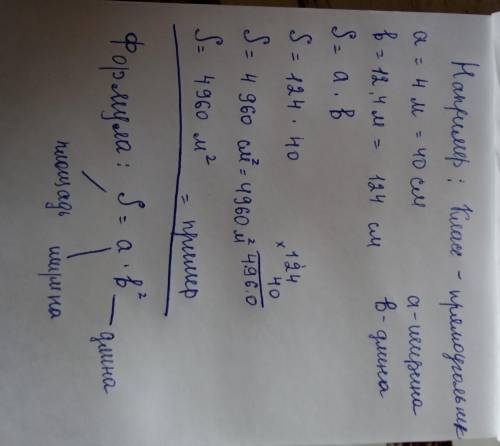 Например: Класс - прямоугольник
a = 4 м = 40 см a - ширина
в = 12,4 м = 124 см в - длина
S = a · в
S = 124 · 40
× 124
40
4960
S = 4 960 см² = 4960 м²
S = 4960 м² = пример
Формула: S = a · в²
площадь ширина длина